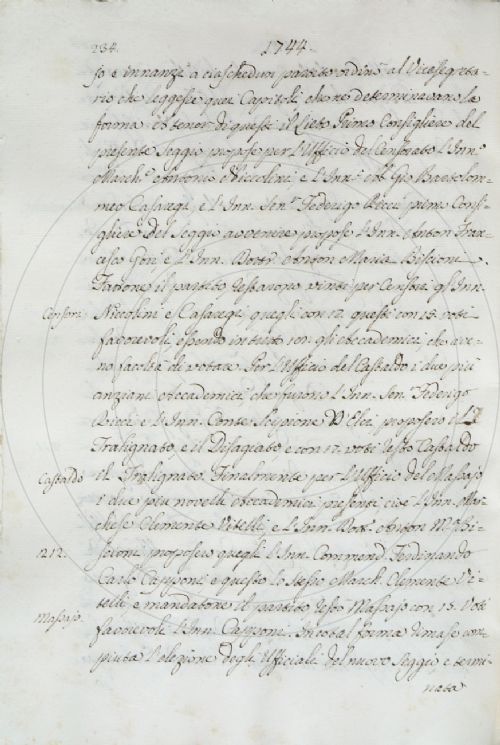 234. 1744.
so e innanzi a ciaschedun partito ordinò al Vicesegreta-
rio che leggesse quei Capitoli che ne determinavano la
forma. A tenor di questi il Lieto Primo Consigliere del
presente Seggio propose per l'Uffizio di Censorato l'Inn.º
March.e Antonio Niccolini, e l'Inn.º Ab. Gio Bartolom-
meo Casaregi, e l'Inn. Sen.r Federigo Ricci primo Consi-
gliere del Seggio avvenire propose l'Inn. Anton Fran-
cesco Gori e l'Inn. Dott.r Anton Maria Biscioni.
Fattone il partito restarono vinti per Censori gl'Inn.
Censori. Niccolini e Casaregi quegli con 12. questi con 13. voti
favorevoli, essendo in tutto 17. gli Accademici, che ave-
no facoltà di votare. Per l'Uffizio del Castaldo i due più
anziani Accademici che furono l'Inn. Sen. Federigo
Ricci e l'Inn. Conte Scipione D'Elci proposero il
Tralignato, e il Disagiato, e con 12. voti restò Castaldo
Castaldo il Tralignato. Finalmente per l'Uffizio del Massajo
i due più novelli Accademici presenti cioè l'Inn. Mar-
chese Clemente Vitelli, e l'Inn. Dott. Anton M.ª Bi-
212. scioni proposero quegli l'Inn. Commend. Ferdinando
Carlo Capponi e questo lo stesso March. Clemente Vi-
telli, e mandatone il partito restò Massajo con 13. Voti
Massajo. favorevoli l'Inn. Capponi. In cotal forma rimase com-
piuta l'elezione degli Uffiziali del nuovo Seggio e termi-
nata